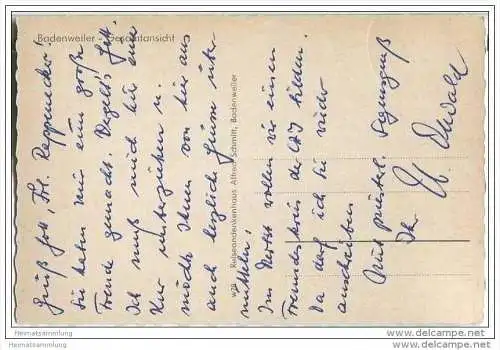 Badenweiler - Gesamtansicht
Grüß Gott, Frl. Reppenecker!
Sie haben mir eine große
Freude gemacht. Vergelts Gott.
Ich muß mich hier einer
Kur unterziehen u.
möcht Ihnen von hier aus
auch herzliche Grüße über-
mitteln!
Im Herbst wollen wir einen
Freundeskreis der hilden.
Da darf ich Sie wieder
anschreiben
Mit priesterl. Segensgruß
Ihr
Ewald
w 78 Reiseandenkenhaus Alfred Schmitt, Badenweiler
Heimatsammlung
Heimatsammlung
http://www.delcampe.net